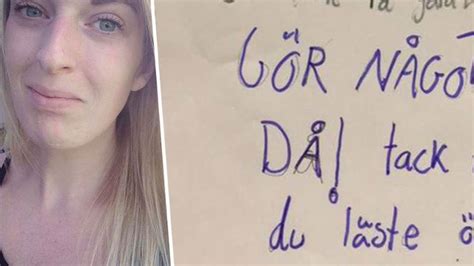 GÖR NÅGOT
DÅ! tack
du läste ö